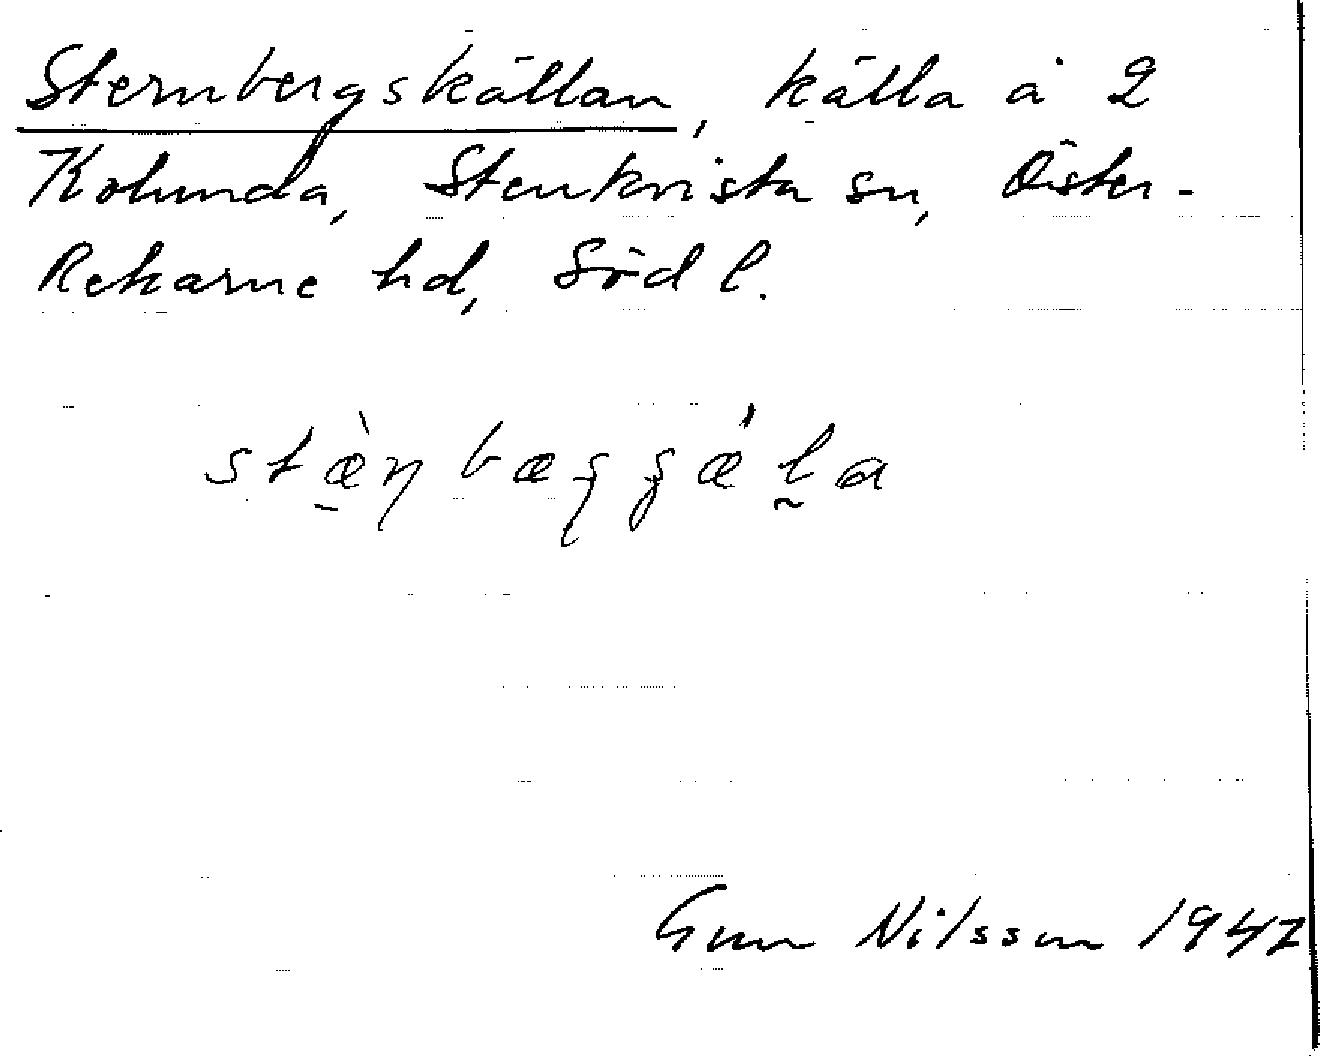 Sternbergskällan, källa å 2
Kolunda, Stenkvista sn, Öster-
Rekarne hd, Södl.
Gun Nilsson 1947